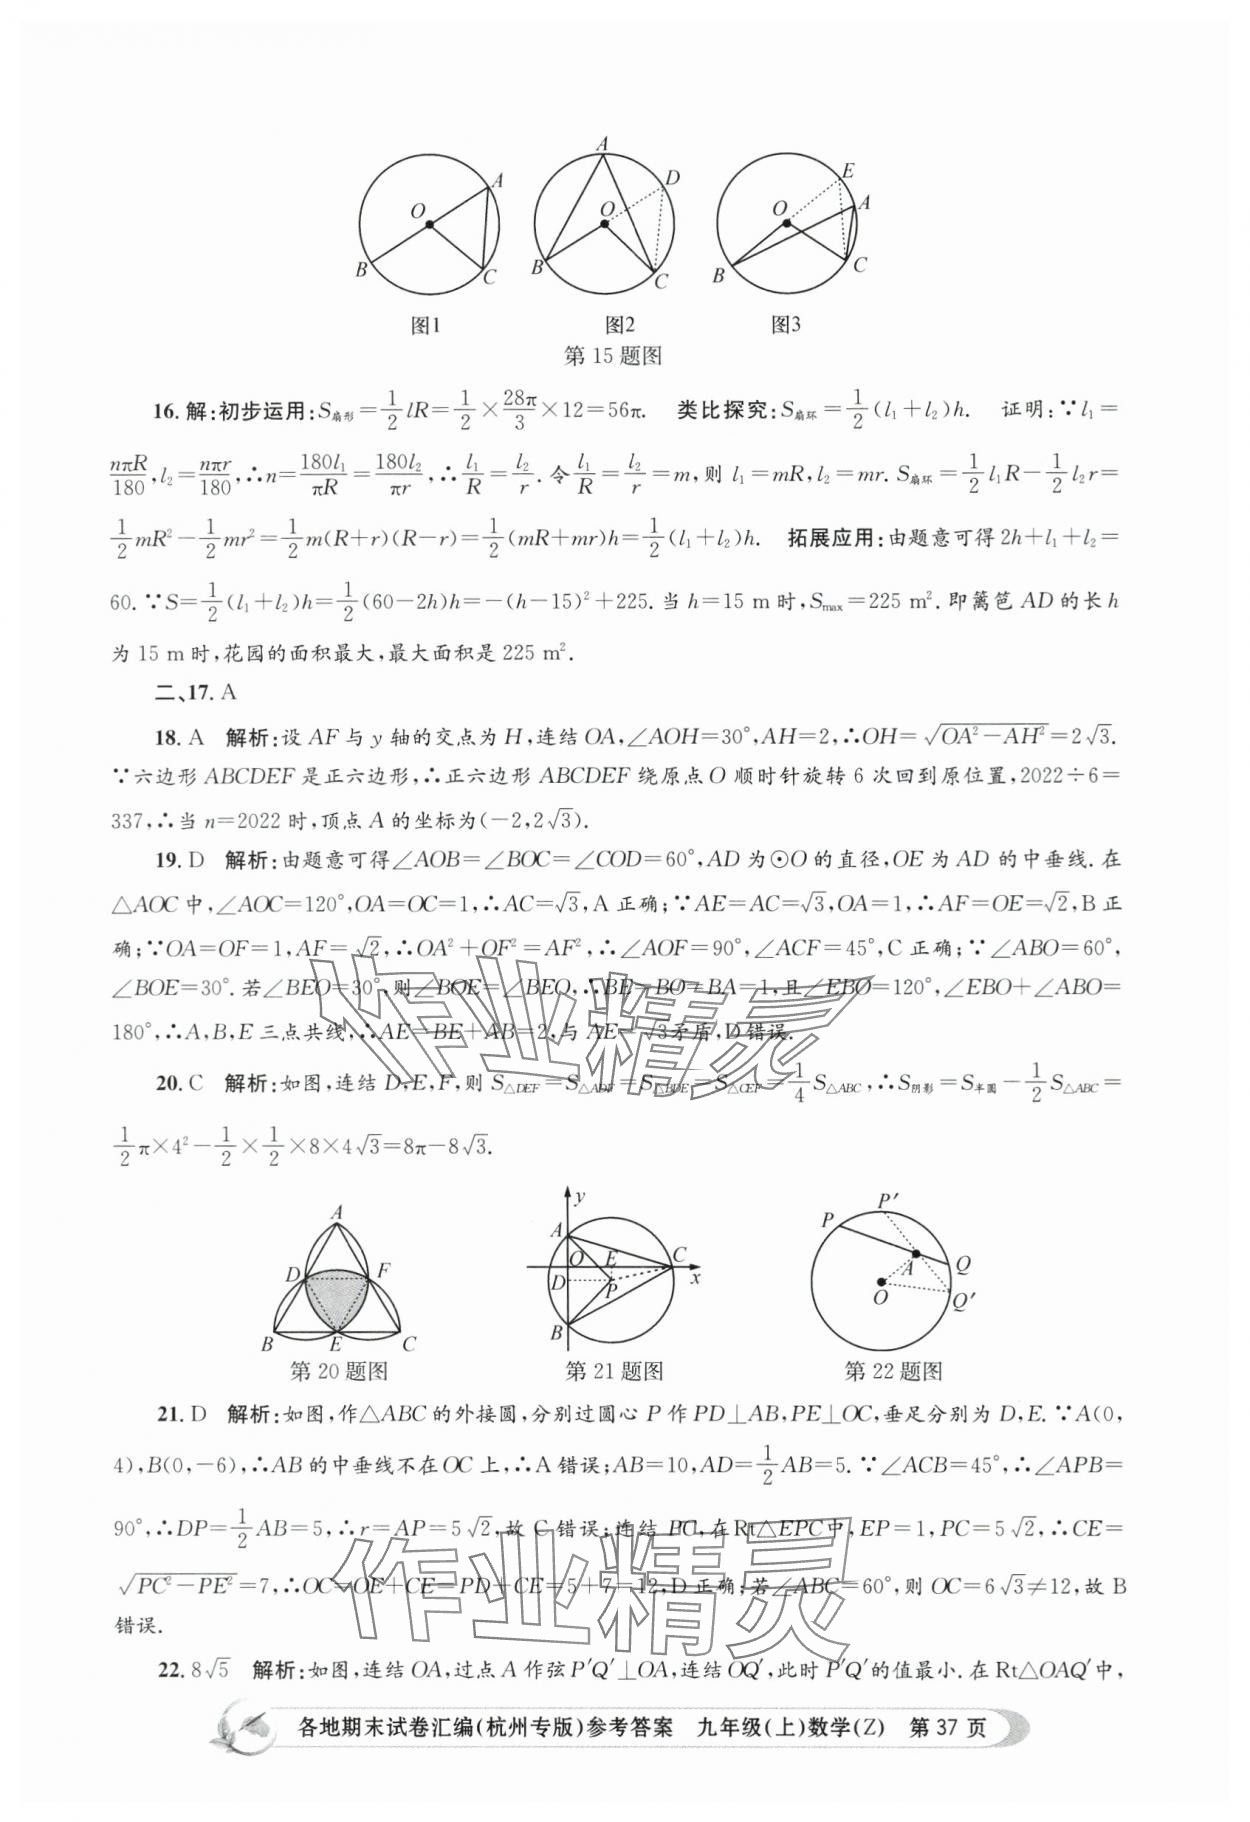 A
O
B
C
图1
A
D
O
B
C
图2
E
A
O
B
C
图3
第15题图
16. 解:初步运用:S扇形=1/2 lR=1/2×28π/3×12=56π. 类比探究:S扇环=1/2(l₁+l₂)h. 证明:∵l₁=
nπR/180,l₂=nπr/180,∴n=180l₁/πR=180l₂/πr,∴l₁/R=l₂/r.令l₁/R=l₂/r=m,则 l₁=mR,l₂=mr.S扇环=1/2 l₁R-1/2 l₂r=
1/2 mR²-1/2 mr²=1/2 m(R+r)(R-r)=1/2(mR+mr)h=1/2(l₁+l₂)h. 拓展应用:由题意可得2h+l₁+l₂=
60.∵S=1/2(l₁+l₂)h=1/2(60-2h)h=-(h-15)²+225.当 h=15 m时,Smax=225 m².即篱笆 AD 的长 h
为 15 m时,花园的面积最大,最大面积是 225 m².
二、17. A
18. A 解析:设 AF 与 y 轴的交点为 H,连结 OA,∠AOH=30°,AH=2,∴OH=√(OA²-AH²)=2√3.
∵六边形 ABCDEF 是正六边形,∴正六边形 ABCDEF 绕原点 O 顺时针旋转 6 次回到原位置,2022÷6=
337,∴当 n=2022 时,顶点 A 的坐标为(-2,2√3).
19. D 解析:由题意可得∠AOB=∠BOC=∠COD=60°,AD 为⊙O 的直径,OE 为 AD 的中垂线.在
△AOC 中,∠AOC=120°,OA=OC=1,∴AC=√3,A 正确;∵AE=AC=√3,OA=1,∴AF=OE=√2,B 正
确;∵OA=OF=1,AF=√2,∴OA²+OF²=AF²,∴∠AOF=90°,∠ACF=45°,C 正确;∵∠ABO=60°,
∠BOE=30°.若∠BEO=30°,则∠BOE=∠BEO,∴BE=BO=BA=1,且∠EBO=120°,∠EBO+∠ABO=
180°,∴A,B,E 三点共线,∴AE=BE+AB=2,与 AE=√3矛盾,D 错误.
20. C 解析:如图,连结 D,E,F,则 S△DEF=S△ADF=S△BDE=S△CEF=1/4 S△ABC,∴S阴影=S半圆-1/2 S△ABC=
1/2 π×4²-1/2×1/2×8×4√3=8π-8√3.
A
D
F
B
E
C
第20题图
y
A
O
E
C
x
D
P
B
第21题图
P′
P
A
Q
O
Q′
第22题图
21. D 解析:如图,作△ABC 的外接圆,分别过圆心 P 作 PD⊥AB,PE⊥OC,垂足分别为 D,E.∵A(0,
4),B(0,-6),∴AB 的中垂线不在 OC 上,∴A 错误;AB=10,AD=1/2 AB=5.∵∠ACB=45°,∴∠APB=
90°,∴DP=1/2 AB=5,∴r=AP=5√2,故 C 错误;连结 PC,在Rt△EPC中,EP=1,PC=5√2,∴CE=
√(PC²-PE²)=7,∴OC=OE+CE=PD+CE=5+7=12,D 正确;若∠ABC=60°,则 OC=6√3≠12,故 B
错误.
22. 8√5 解析:如图,连结 OA,过点 A 作弦 P′Q′⊥OA,连结 OQ′,此时 P′Q′的值最小.在 Rt△OAQ′中,
各地期末试卷汇编(杭州专版)参考答案 九年级(上)数学(Z) 第 37 页
作业精灵
作业精灵